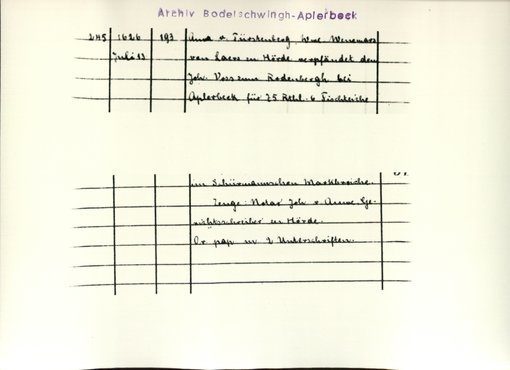 Archiv Bodelschwingh-Aplerbeck
245 1626 193 Anna v. Fürstenberg Wwe. Wenemars
Juli 13 von Laer in Hörde verpfändet den
Joh. Voss zum Rodenbergh bei
Aplerbeck für 75 Rthl. 6 Fischteiche
im Schürmannschen Markbreiche.
Zeuge: Notar Joh. v. Ge-
richtsschreiber in Hörde.
Or. pap. m. 2 Unterschriften.